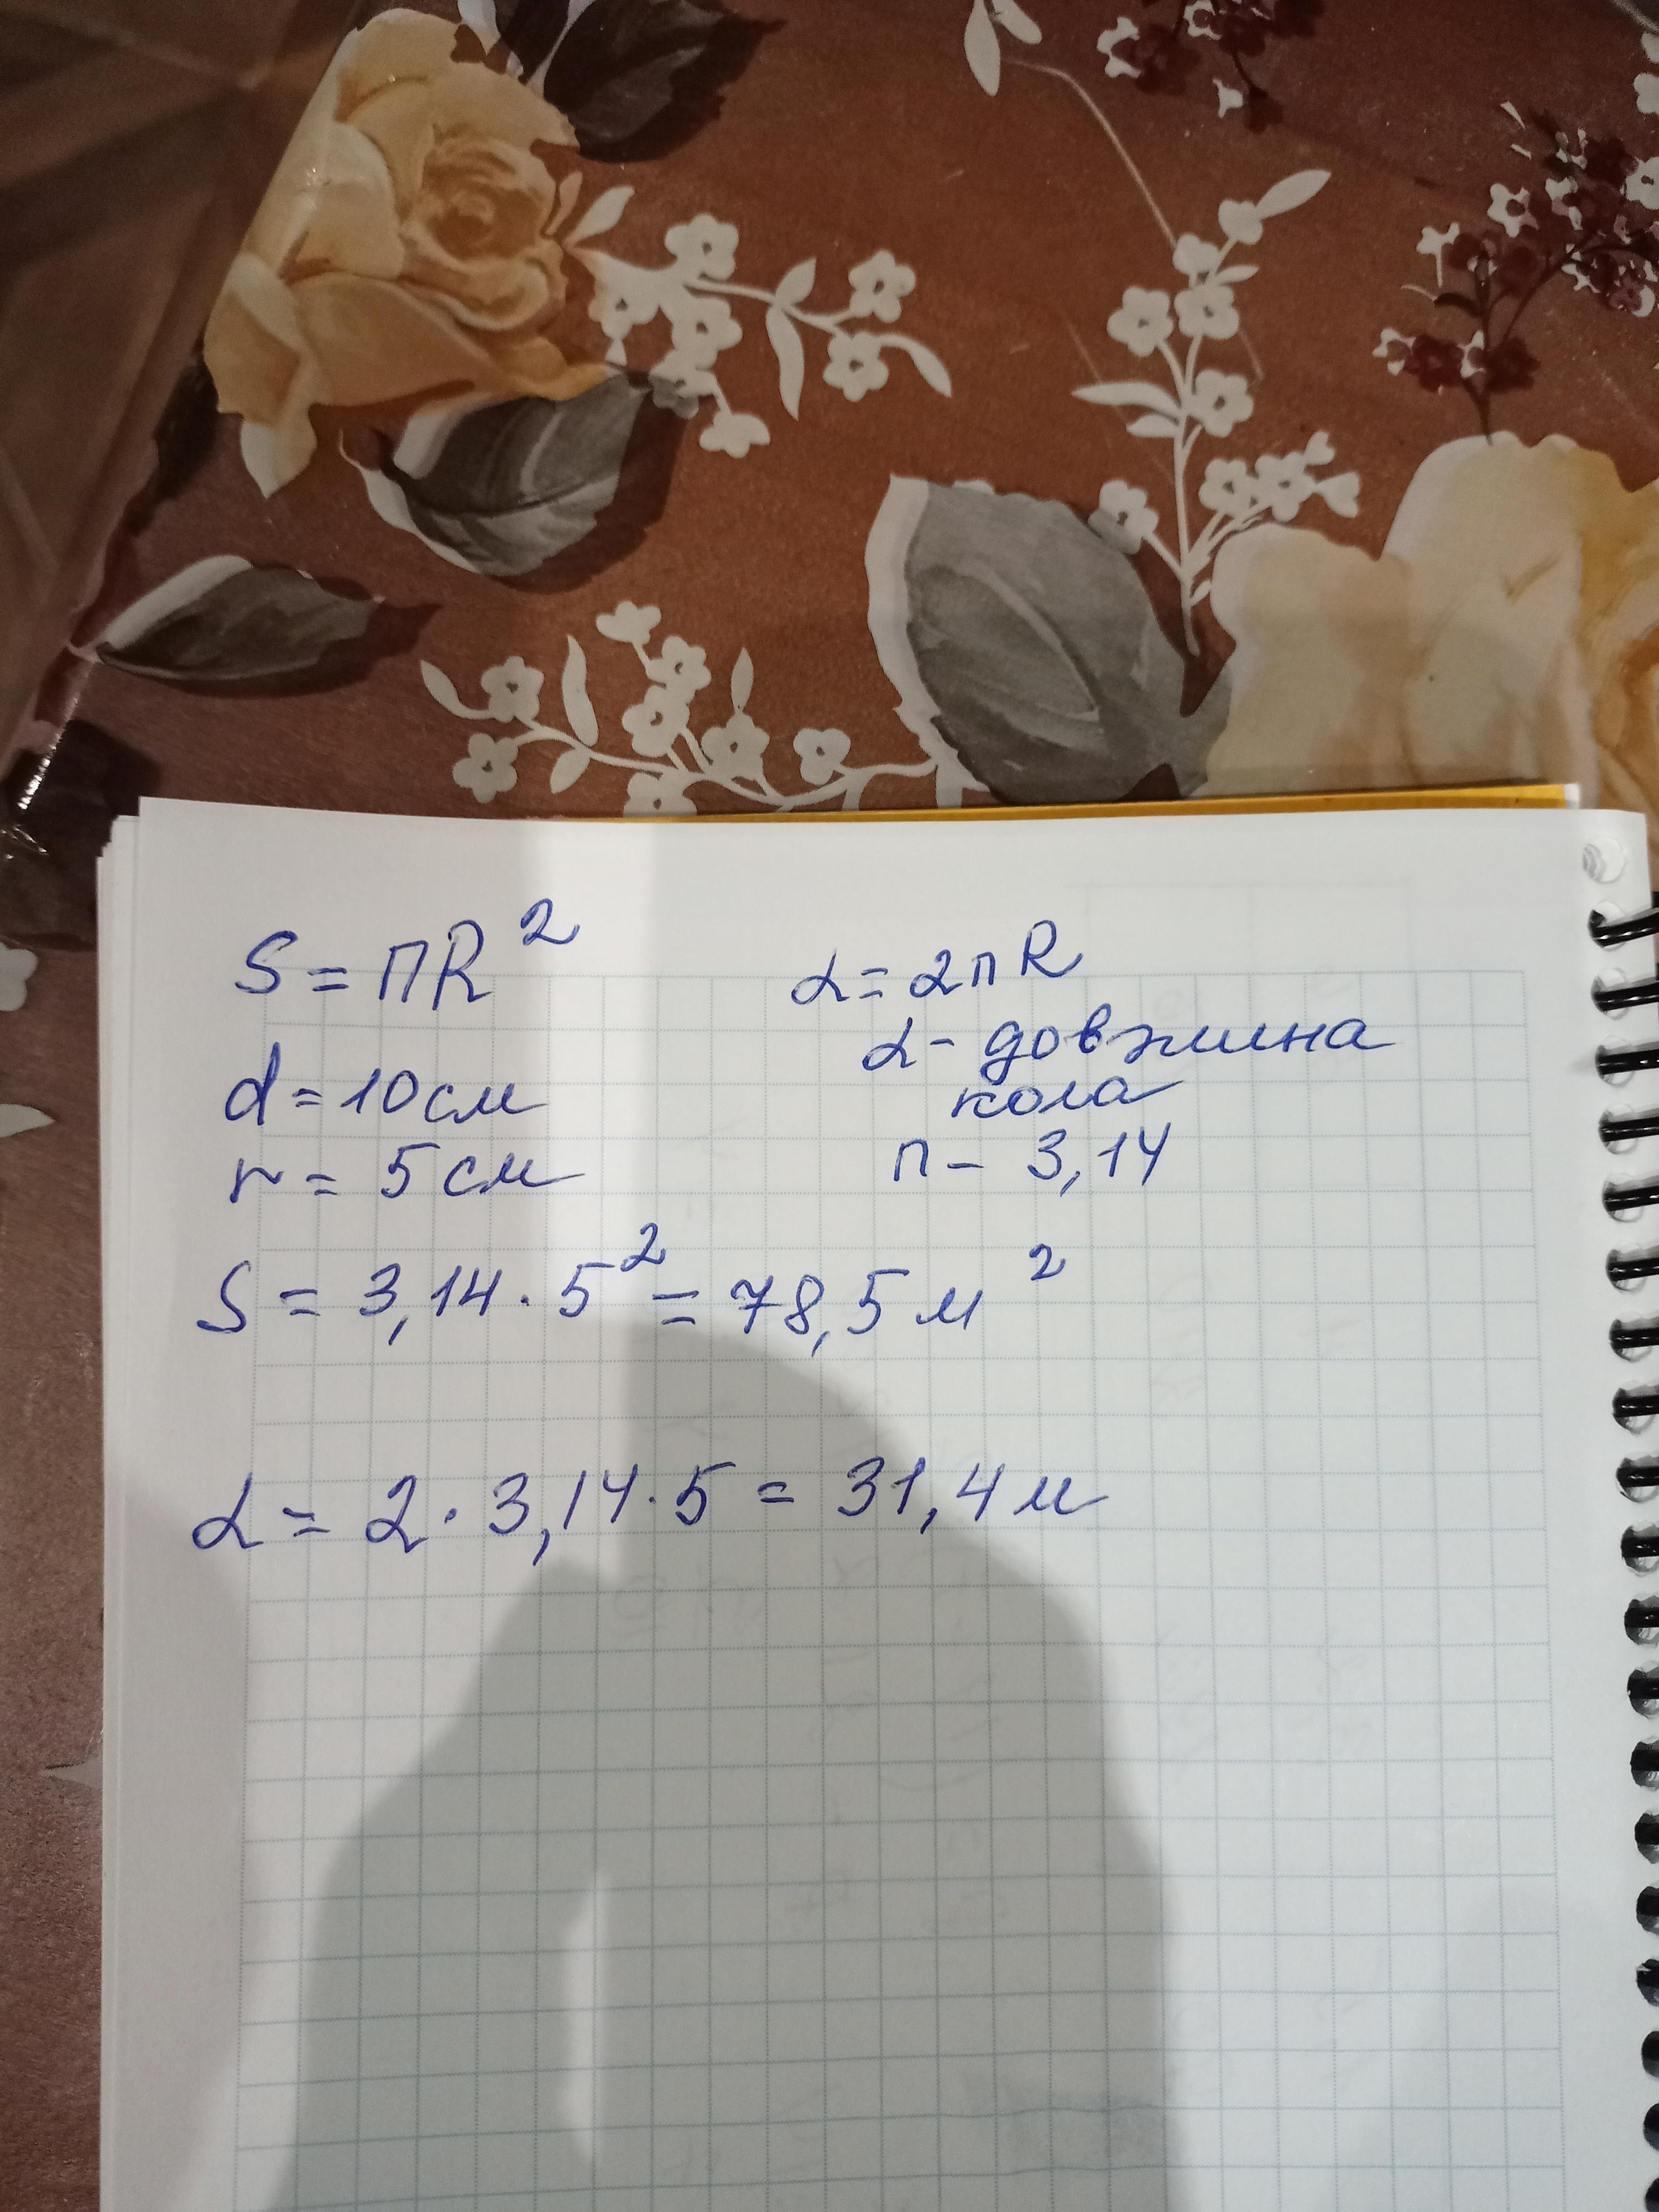 S = πR²
L = 2πR
L - довжина
кола
π - 3,14
d = 10 см
r = 5 см
S = 3,14 · 5² = 78,5 м²
L = 2 · 3,14 · 5 = 31,4 м